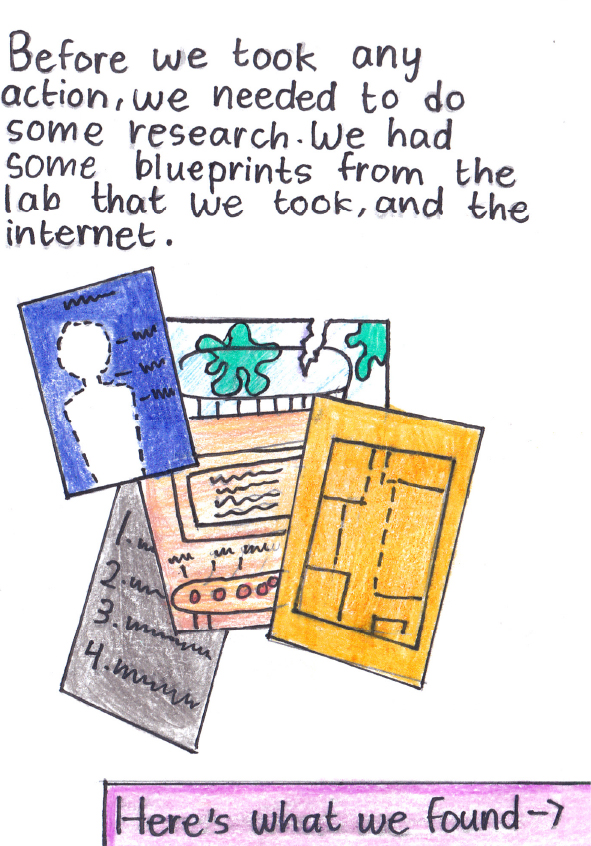 Before we took any
action, we needed to do
some research. We had
some blueprints from the
lab that we took, and the
internet.
1.
2.
3.
4.
Here's what we found->